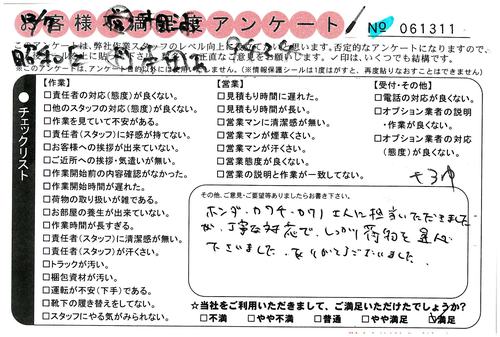 お客様満足度アンケート
№ 061311
このアンケートは、弊社作業スタッフのレベル向上に
思います。否定的なアンケートになりますので、
正直なご意見をお願いします。✓印は、いくつでも結構です。
※このアンケートは、アンケート目的以外には使用いたしません。(※情報保護シールは1度はがすと、再度貼りなおすことはできません)
●チェックリスト
【作業】
□責任者の対応(態度)が良くない。
□他のスタッフの対応(態度)が良くない。
□作業を見ていて不安がある。
□責任者(スタッフ)に好感が持てない。
□お客様への挨拶が出来ていない。
□ご近所への挨拶・気遣いが無い。
□作業開始前の内容確認がなかった。
□作業開始時間が遅れた。
□荷物の取り扱いが雑である。
□お部屋の養生が出来ていない。
□作業時間が長すぎる。
□責任者(スタッフ)に清潔感が無い。
□責任者(スタッフ)が汗くさい。
□トラックが汚い。
□梱包資材が汚い。
□運転が不安(下手)である。
□靴下の履き替えをしてない。
□スタッフにやる気がみられない。
【営業】
□見積もり時間に遅れた。
□見積もり時間が長い。
□営業マンに清潔感が無い。
□営業マンが煙草くさい。
□営業マンが汗くさい。
□営業態度が良くない。
□営業の説明と作業が一致してない。
【受付・その他】
□電話の対応が良くない。
□オプション業者の説明
・作業が良くない。
□オプション業者の対応
(態度)が良くない。
その他、ご意見・ご要望等ありましたらお書き下さい。
ホンダ・カワチ・カワノさんに担当いただきました
が、丁寧な対応で、しっかり荷物を運んで
下さいました。ありがとうございました。
☆当社をご利用いただきまして、ご満足いただけたでしょうか?
□不満 □やや不満 □普通 □やや満足 ☑満足